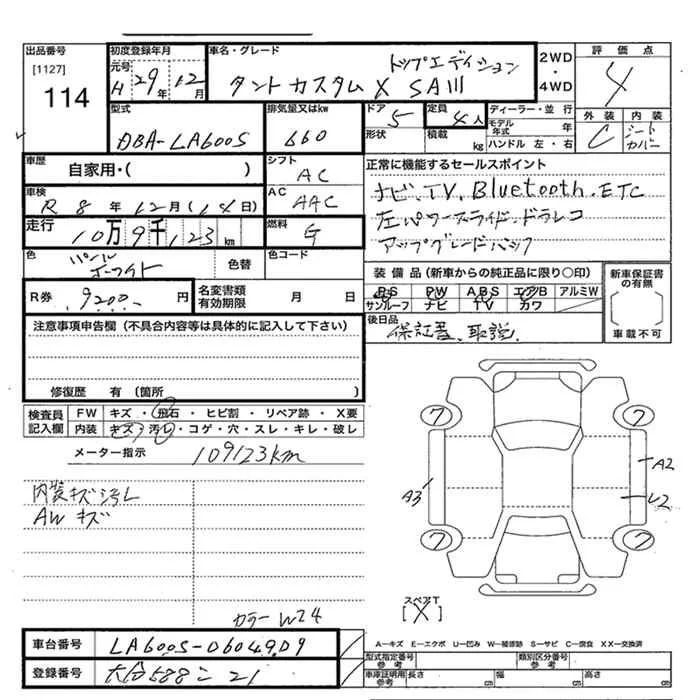 出品番号 初度登録年月 車名・グレード 2WD・4WD 評価点
[1127] 元号 H 29年 12月 トップエディション 4
114 タントカスタム X SAⅢ 外装 内装
型式 排気量又はkw ドア 5 定員 4人 ディーラー・並行 C シートカバー
DBA-LA600S 660 形状 積載 kg モデル年式 年 ハンドル 左・右
車歴 自家用・( ) シフト AC 正常に機能するセールスポイント
車検 R 8年 12月(14日) AC AAC ナビ.TV.Bluetooth.ETC
走行 10万9千123km 燃料 G 左パワースライド.ドラレコ
色 パールホワイト 色替 色コード アップグレードパック
R券 9200 円 名変書類有効期限 月 日 装備品(新車からの純正品に限り○印) 新車保証書の有無
PS PW ABS エアB アルミW
サンルーフ ナビ TV カワ 車載不可
注意事項申告欄(不具合内容等は具体的に記入して下さい) 後日品 保証書、取説
修復歴 有(箇所 )
検査員記入欄 FW キズ・飛石・ヒビ割・リペア跡・X要
内装 キズ・汚レ・コゲ・穴・スレ・キレ・破レ
メーター指示 109123km
7 7
内装キズ汚レ A3 A2
AWキズ U2
7 7
スペアT
[X]
カラーW24
A―キズ E―エクボ U―凹み W―補修跡 S―サビ C―腐食 XX―交換済
車台番号 LA600S-0604909 型式指定番号 参考 類別区分番号 参考
登録番号 大分588こ21 車庫証明用参考 長さ cm 幅 cm 高さ cm